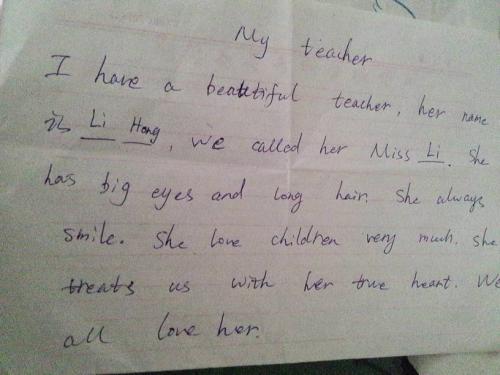 My teacher
I have a beautiful teacher, her name
is Li Hong, we called her Miss Li. She
has big eyes and long hair. She always
smile. She love children very much. she
treats us with her true heart. We
all love her.